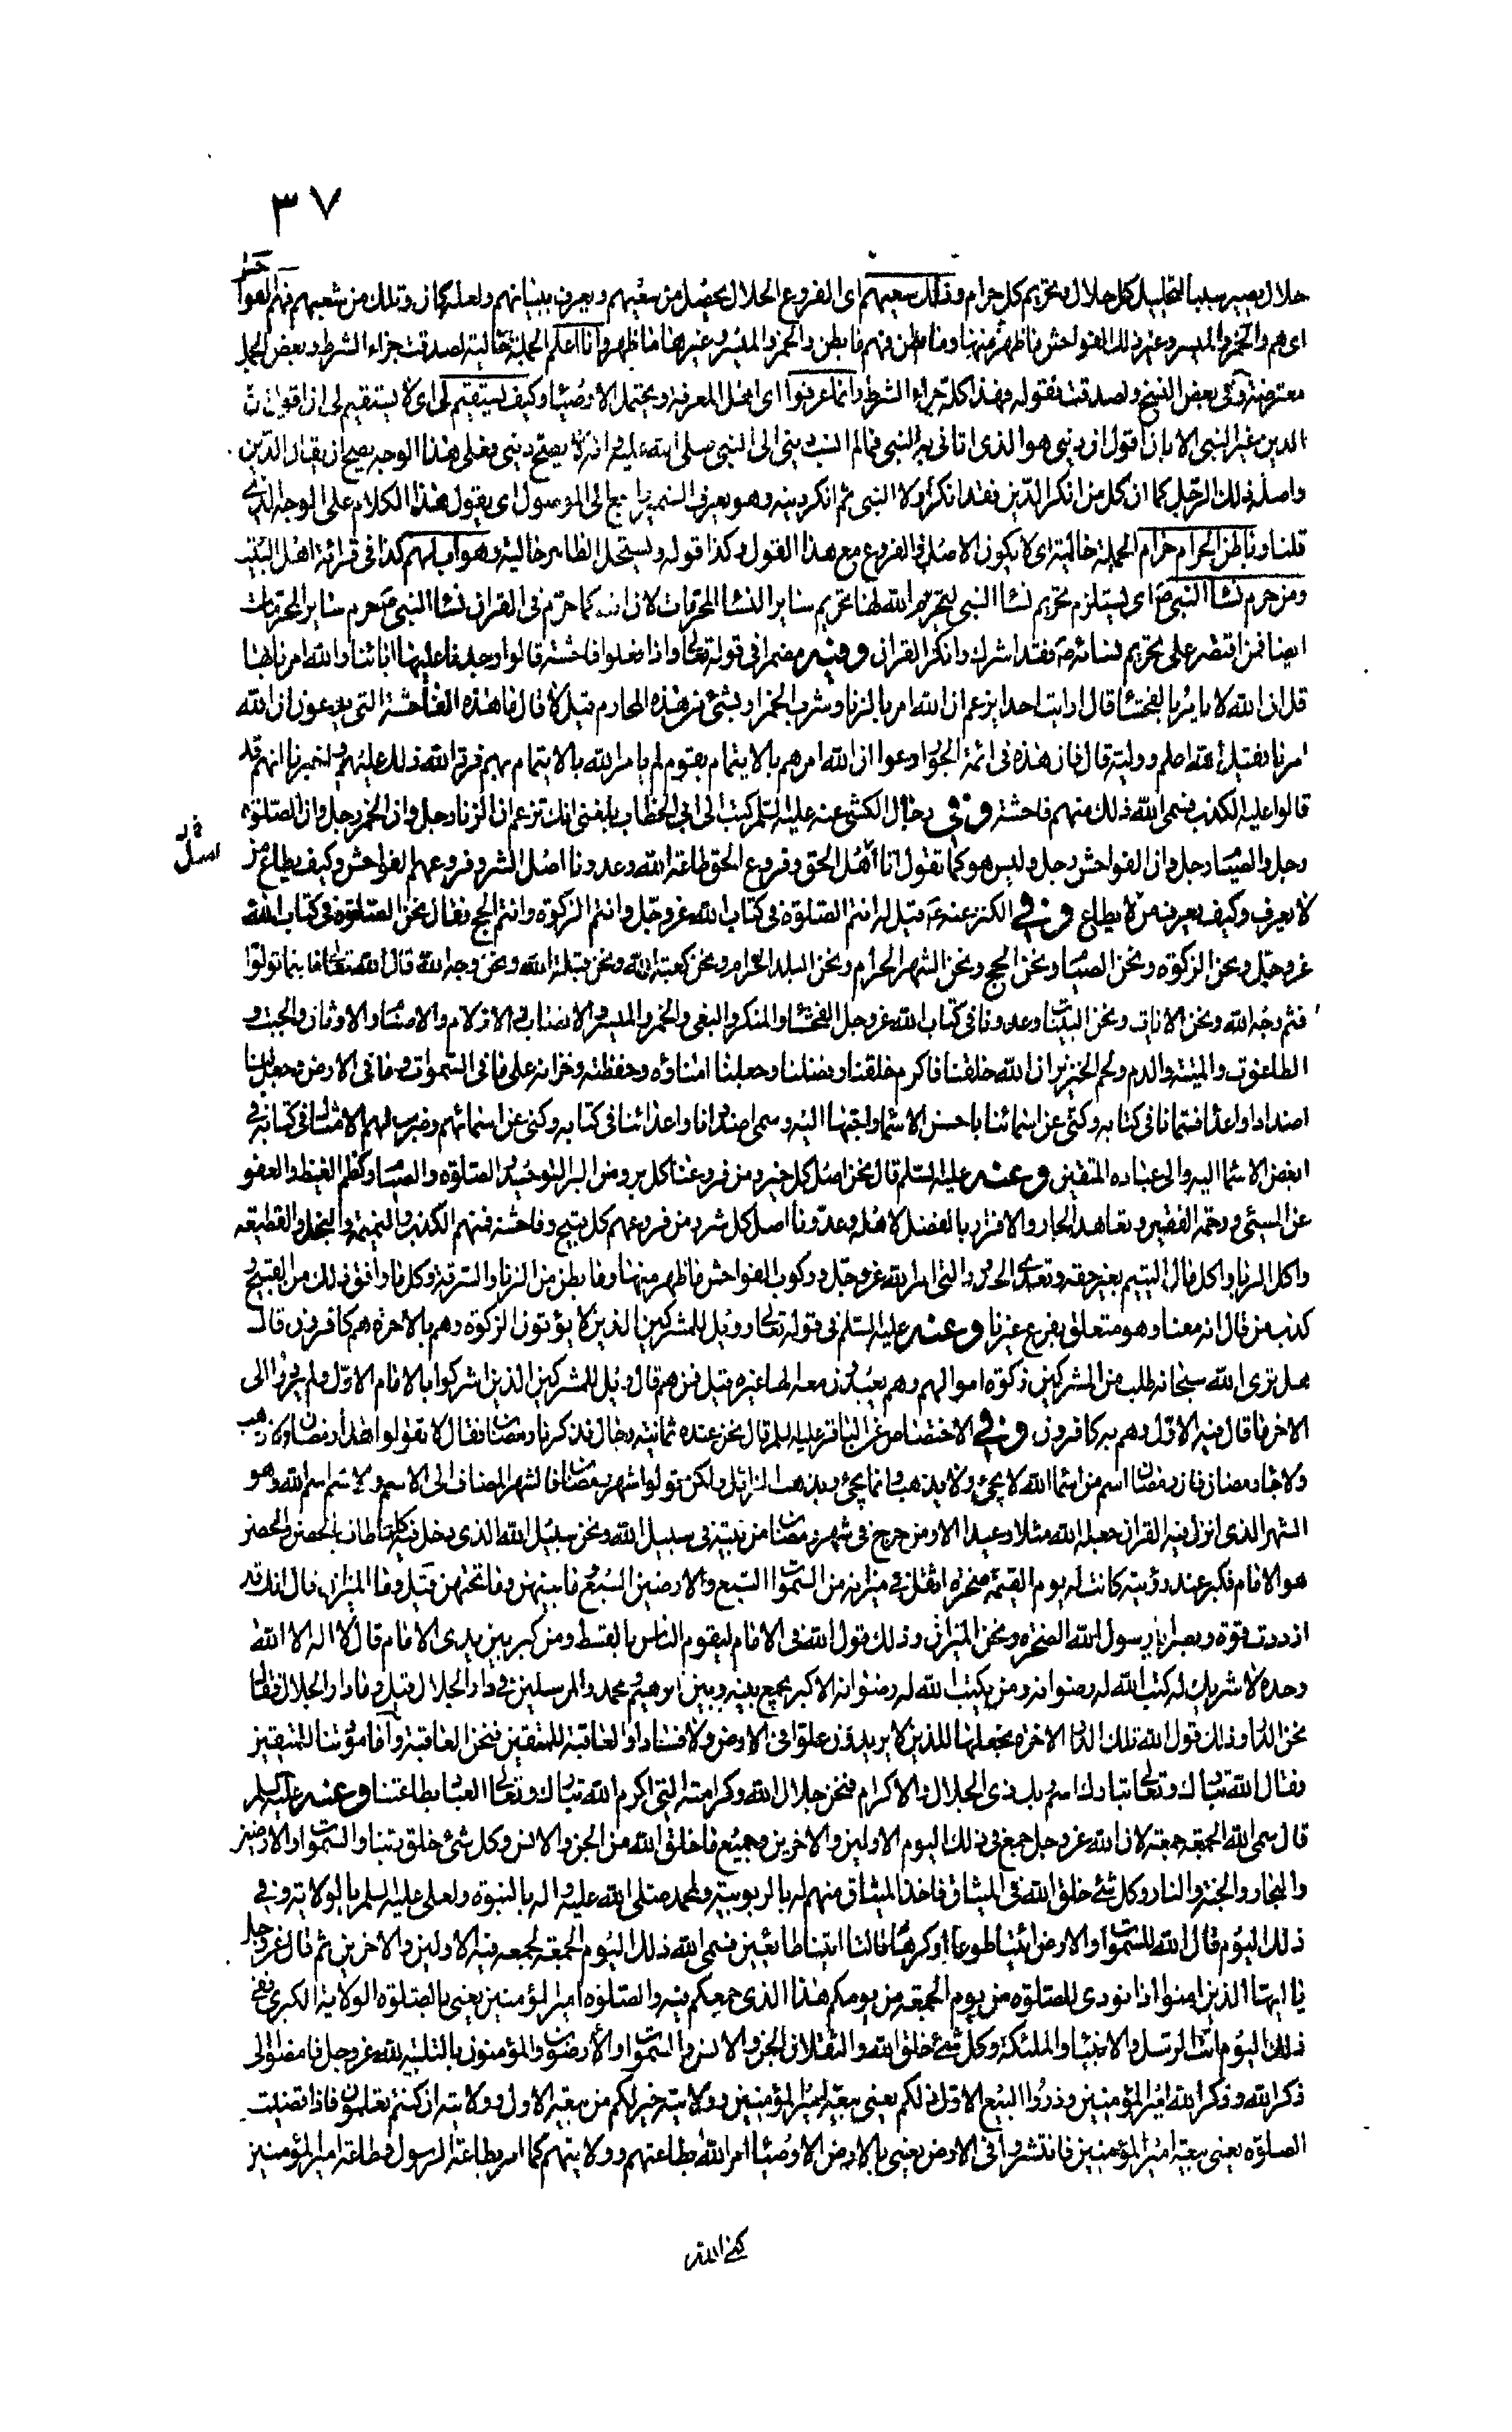 ٣٧
حلال يصير سببا لتحليل كل حلال بتحريم كل حرام وذلك سعيهم اى الفروع الحلال يحصل من سعيهم ويعرف ببيانهم ولعله كان وتلك من شعبهم فهم العوا
اى هم والخمر والميسر وغير ذلك الفواحش ما ظهر منها وما بطن فهم ما بطن والخمر والميسر وغيرها ما ظهر وانا اعلم الجملة حالية لصدقت جزاء الشرط وبعض الجمل
معترضة وفى بعض النسخ ولصدقت فقوله وهذا كله جزاء الشرط وانما عرفوا اى اهل المعرفة ويحتمل الاوصيا وكيف يستقيم لى اى لا يستقيم لى ان اقول ان
الدين غير النبى الا بان اقول ان دينى هو الذى اتانى به النبى فما لم انسب دينى الى النبى صلى الله عليه واله لا يصح دينى فعلى هذا الوجه يصح ان يقال الدين
واصله ذلك الرجل كما ان كل من انكر الدين فقد انكر اولا النبى ثم انكر دينه وهو يعرف الضمير راجع الى الموصول اى يقول هذا الكلام على الوجه الذى
قلنا وباطن الحرام حرام الجملة حالية اى لا يكون الاصل والفروع مع هذا القول وكذا قوله ويستحل الظاهر حالية وهو اب لهم كذا فى قرائة اهل البيت
ومن حرم نسا النبى ص اى يستلزم تحريم نسا النبى لتحريم الله لها تحريم سائر النسا المحرمات لان الله كما حرم فى القران نسا النبى ص حرم سائر المحرمات
ايضا فمن اقتصر على تحريم نسائه ص فقد اشرك وانكر القران وفيه مضمرا فى قوله تعالى واذا فعلوا فاحشة قالوا وجدنا عليها ابائنا والله امرنا بها
قل ان الله لا يامر بالفحشا قال ارايت احدا يزعم ان الله امر بالزنا وشرب الخمر او بشئ من هذه المحارم قيل لا قال فما هذه الفاحشة التى يدعون ان الله
امرنا فقيل الله اعلم ووليه قال فان هذه فى ائمة الجور ادعوا ان الله امرهم بالايتمام بقوم لم يامر الله بالايتمام بهم فرد الله ذلك عليهم واخبرنا انهم قد
قالوا عليه الكذب فسمى الله ذلك منهم فاحشة وفى رجال الكشى عنه عليه السلم كتب الى ابى الخطاب بلغنى انك تزعم ان الزنا رجل وان الخمر رجل وان الصلوة
رجل والصيا رجل وان الفواحش رجل وليس هو كما تقول انا اهل الحق وفروع الحق طاعة الله وعدونا اصل الشر وفروعهم الفواحش وكيف يطاع من
اصل
لا يعرف وكيف يعرف من لا يطاع وفى الكنز عنه ع قيل له انتم الصلوة فى كتاب الله عز وجل وانتم الزكوة وانتم الحج فقال نحن الصلوة فى كتاب الله
عز وجل ونحن الزكوة ونحن الصيا ونحن الحج ونحن الشهر الحرام ونحن البلد الحرام ونحن كعبة الله ونحن قبلة الله ونحن وجه الله قال الله تعالى فاينما تولوا
فثم وجه الله ونحن الايات ونحن البينات وعدونا فى كتاب الله عز وجل الفحشا والمنكر والبغى والخمر والميسر والانصاب والازلام والاصنا والاوثان والجبت و
الطاغوت والميتة والدم ولحم الخنزير ان الله خلقنا فاكرم خلقنا وفضلنا وجعلنا امناؤه وحفظته وخزانه على ما فى السموات وما فى الارض وجعل لنا
اضدادا واعدا فسمانا فى كتابه وكنى عن اسمائنا باحسن الاسما واحبها اليه وسمى اضدادنا واعدائنا فى كتابه وكنى عن اسمائهم وضرب لهم الامثال فى كتابه فى
ابغض الاسما اليه والى عباده المتقين وعنه عليه السلم قال نحن اصل كل خير ومن فروعنا كل بر ومن البر التوحيد والصلوة والصيا وكظم الغيظ والعفو
عن المسئ ورحمة الفقير وتعاهد الجار والاقرار بالفضل لاهله وعدونا اصل كل شر ومن فروعهم كل قبيح وفاحشة فمنهم الكذب والنميمة والبخل والقطيعة
واكل الربا واكل مال اليتيم بغير حقه وتعدى الحدود التى امر الله عز وجل وركوب الفواحش ما ظهر منها وما بطن من الزنا والسرقة وكل ما وافق ذلك من القبيح و
كذب من قال انه معنا وهو متعلق بفرع غيرنا وعنه عليه السلم فى قوله تعالى وويل للمشركين الذين لا يؤتون الزكوة وهم بالاخرة هم كافرون قال
هل ترى الله سبحانه طلب من المشركين زكوة اموالهم وهم يعبدون معه الها غيره قيل فمن هم قال ويل للمشركين الذين اشركوا بالامام الاول ولم يردوا الى
الاخر ما قال فيه الاول وهم به كافرون وفى الاختصاص عن الباقر عليه السلم قال نحن عنده ثمانية رجال فذكرنا رمضان فقال لا تقولوا هذا رمضان ولا ذهب
ولا جا رمضان فان رمضان اسم من اسما الله لا يجئ ولا يذهب وانما يجئ ويذهب الزائل ولكن قولوا شهر رمضان فالشهر المضاف الى الاسم والاسم اسم الله وهو
الشهر الذى انزل فيه القران جعله الله مثلا وعيدا الا ومن خرج فى شهر رمضان من بيته فى سبيل الله ونحن سبيل الله الذى من دخل فيه يطاف بالحصن والحصن
هو الامام فكبر عند رؤيته كانت له يوم القيمة صخرة اثقل فى ميزانه من السموات السبع والارضين السبع وما بينهن وما تحتهن قيل وما الميزان قال انك قد
ازددت قوة وبصرا يا رسول الله الصخرة ونحن الميزان وذلك قول الله فى الامام ليقوم الناس بالقسط ومن كبر بين يدى الامام قال لا اله الا الله
وحده لا شريك له كتب الله له رضوانه ومن يكتب الله له رضوانه الاكبر يجمع بينه وبين ابرهيم ومحمد والمرسلين فى دار الجلال قيل وما دار الجلال فقال
نحن الدار وذلك قول الله تلك الدار الاخرة نجعلها للذين لا يريدون علوا فى الارض ولا فسادا والعاقبة للمتقين فنحن العاقبة واما مودتنا للمتقين
فقال الله تبارك وتعالى تبارك اسم ربك ذى الجلال والاكرام فنحن جلال الله وكرامته التى اكرم الله تبارك وتعالى العباد بطاعتنا وعنه عليه السلم
قال سمى الله الجمعة جمعة لان الله عز وجل جمع فى ذلك اليوم الاولين والاخرين وجميع ما خلق الله من الجن والانس وكل شئ خلق ربنا والسموات والارضين
والبحار والجنة والنار وكل شئ خلق الله فى الميثاق فاخذ الميثاق منهم له بالربوبية ولمحمد صلى الله عليه واله بالنبوة ولعلى عليه السلم بالولاية وفى
ذلك اليوم قال الله للسموات والارض ائتيا طوعا او كرها قالتا اتينا طائعين فسمى الله ذلك اليوم الجمعة لجمعه فيه الاولين والاخرين ثم قال عز وجل
يا ايها الذين امنوا اذا نودى للصلوة من يوم الجمعة من يومكم هذا الذى جمعكم فيه والصلوة امير المؤمنين يعنى بالصلوة الولاية الكبرى ففى
ذلك اليوم اتت الرسل والانبيا والملئكة وكل شئ خلق الله والثقلان الجن والانس والسموات والارضون والمؤمنون بالتلبية لله عز وجل فامضوا الى
ذكر الله وذكر الله امير المؤمنين وذروا البيع الاول ذلكم يعنى بيعة امير المؤمنين وولايته خير لكم من بيعة الاول وولايته ان كنتم تعلمون فاذا قضيت
الصلوة يعنى بيعة امير المؤمنين فانتشروا فى الارض يعنى بالارض الاوصيا امر الله بطاعتهم وولايتهم كما امر بطاعة الرسول وطاعة امير المؤمنين